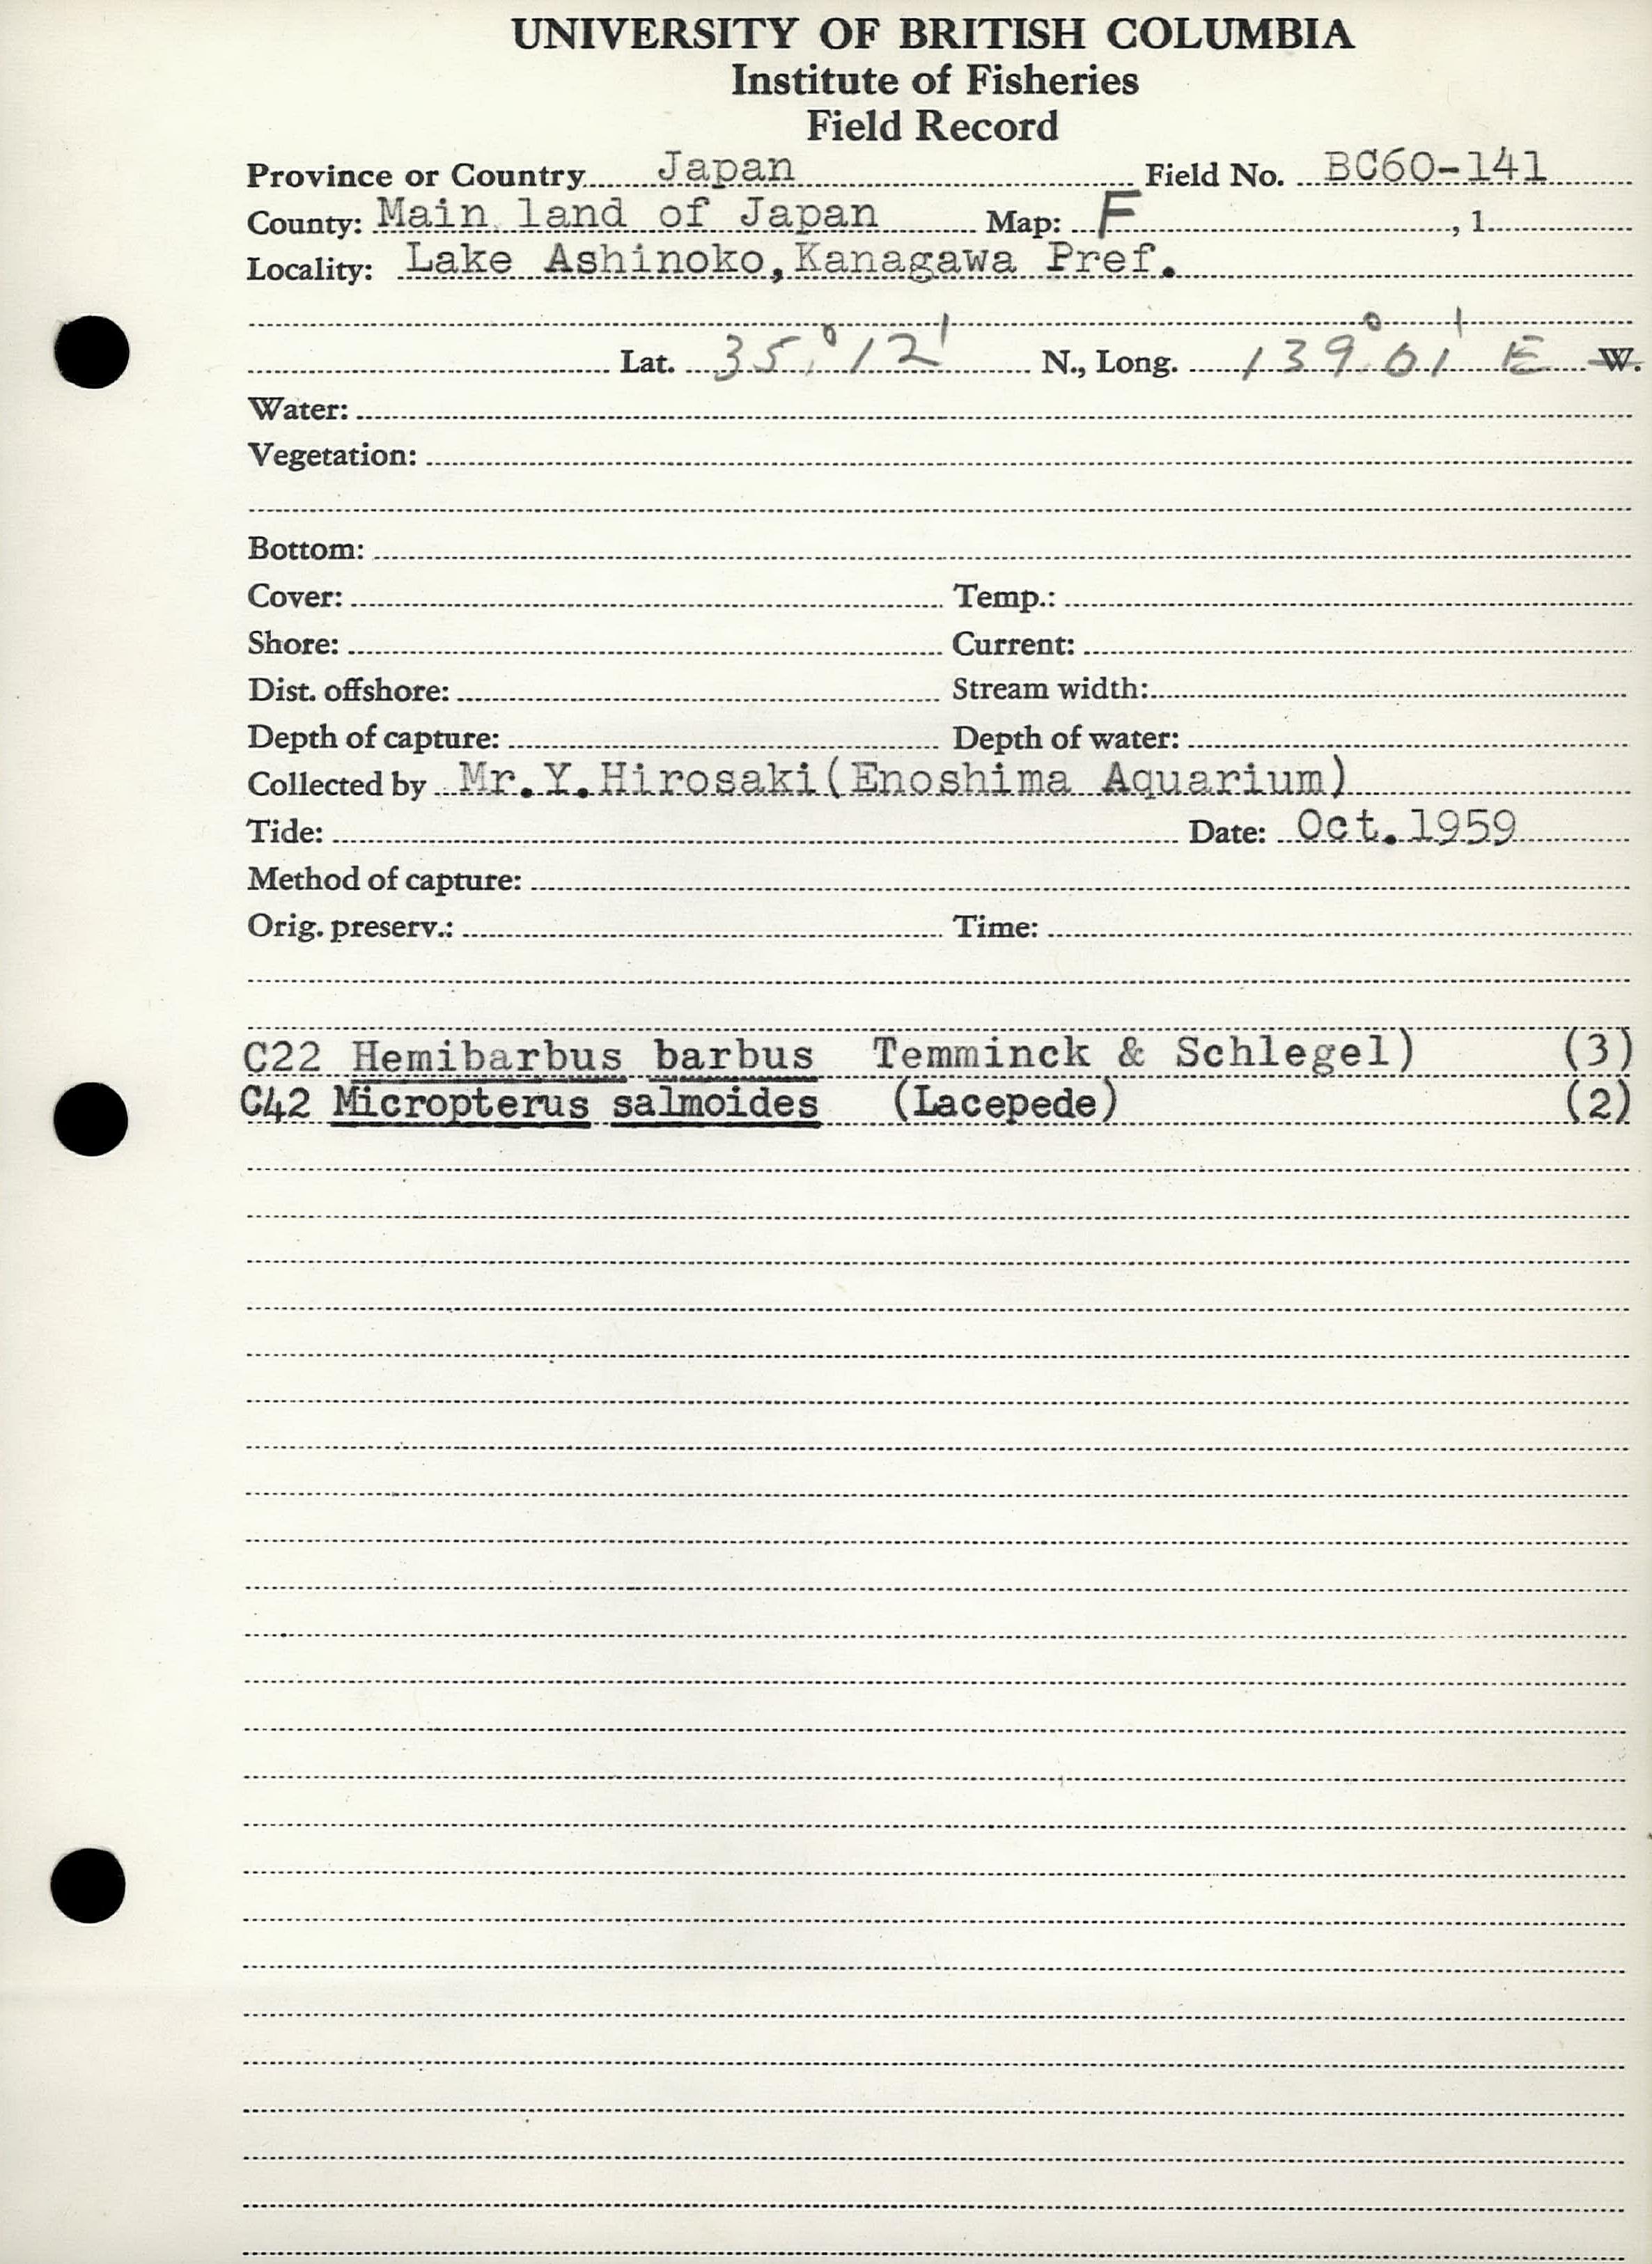 UNIVERSITY OF BRITISH COLUMBIA
Institute of Fisheries
Field Record
Province or Country Japan Field No. BC60-141
County: Main land of Japan Map: F , 1
Locality: Lake Ashinoko, Kanagawa Pref.
Lat. 35° 12' N., Long. 139° 01' E W.
Water:
Vegetation:
Bottom:
Cover: Temp.:
Shore: Current:
Dist. offshore: Stream width:
Depth of capture: Depth of water:
Collected by Mr. Y. Hirosaki (Enoshima Aquarium)
Tide: Date: Oct. 1959
Method of capture:
Orig. preserv.: Time:
C22 Hemibarbus barbus Temminck & Schlegel) (3)
C42 Micropterus salmoides (Lacepede) (2)